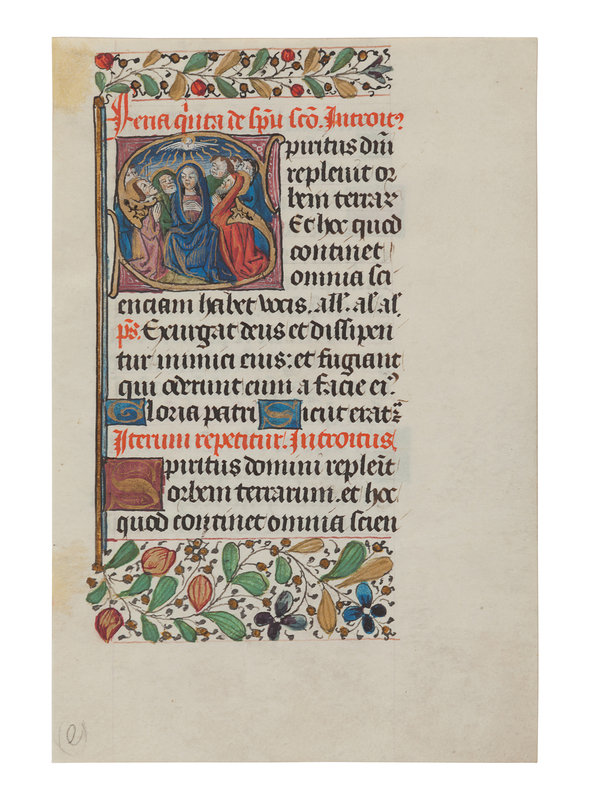 Feria q̃nta de sp̃u sc̃o. Introit⁹
Spiritus dñi
repleuit or
bem terrar
Et hoc quod
continet
omnia sci
enciam habet vocis. all'. al' al'.
p̃s. Exurgat deus et dissipen
tur inimici eius: et fugiant
qui oderunt eum a facie ei⁹.
Gloria patri Sicut erat ꝛ̃
Iterum repetitur. Introitus.
Spiritus domini repleũt
orbem terrarum. et hoc
quod continet omnia scien